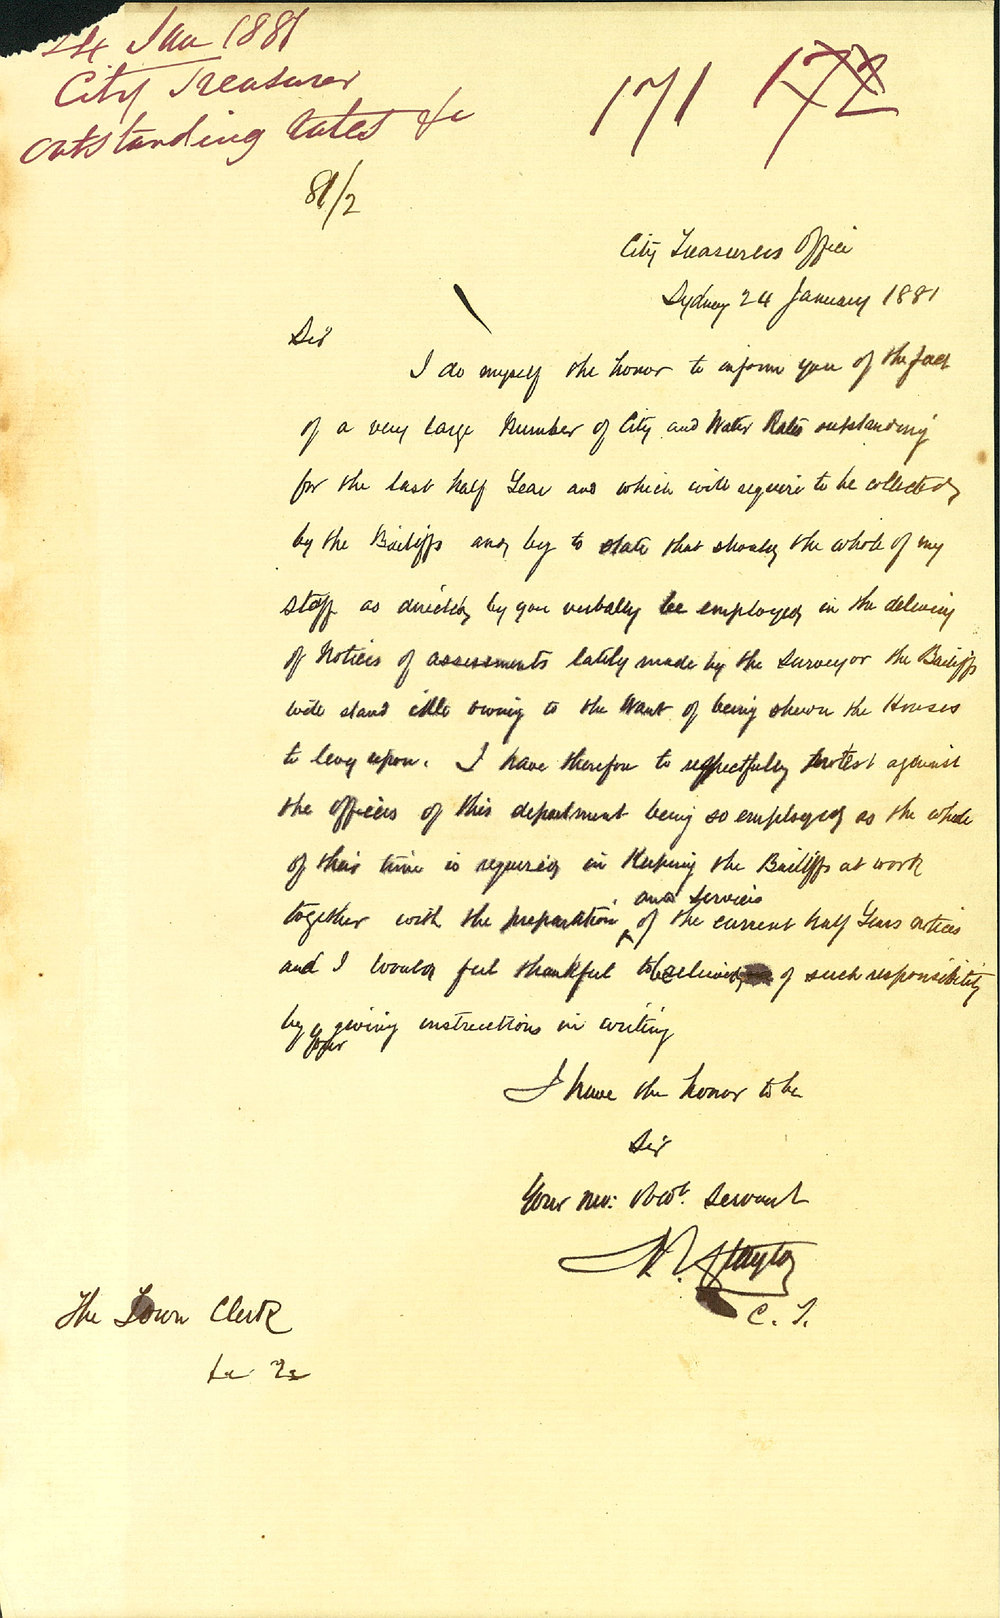 24 Jan 1881
City Treasurer
Outstanding Rates &c
171 172
81/2
City Treasurers Office
Sydney 24 January 1881
Sir
I do myself the honor to inform you of the fact
of a very large Number of City and Water Rates outstanding
for the last half Year and which will require to be collected
by the Bailiffs and beg to state that should the whole of my
staff as directed by you verbally be employed in the delivery
of Notices of assessments lately made by the Surveyor the Bailiffs
will stand idle owing to the Want of being shewn the Houses
to levy upon. I have therefore to respectfully protest against
the officers of this department being so employed as the whole
of their time is required in Keeping the Bailiffs at work
and services
together with the preparation of the current half Years notices
and I would feel thankful to be relieved of such responsibility
by your giving instructions in writing
I have the honor to be
Sir
Your Mo: Obdt. Servant
Clayton
C. T.
The Town Clerk
&c &c